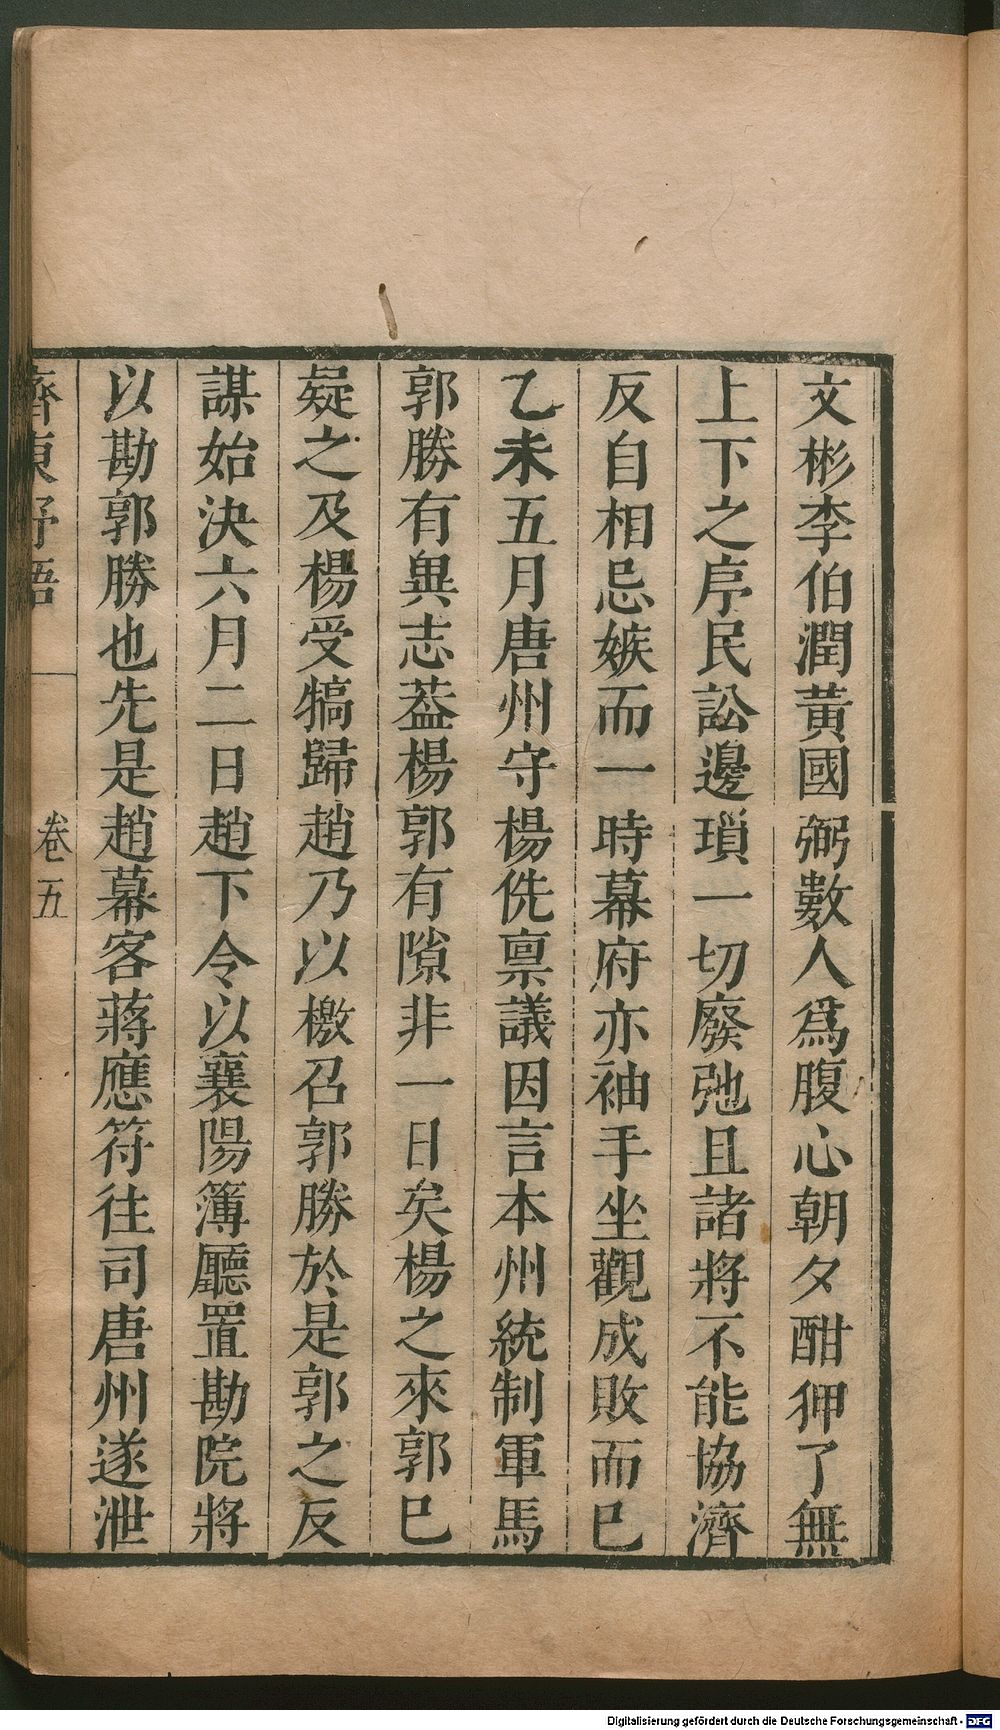 文彬李伯潤黃國弼數人爲腹心朝夕酣狎了無
上下之序民訟邊瑣一切廢弛且諸將不能協濟
反自相忌嫉而一時幕府亦袖手坐觀成敗而巳
乙未五月唐州守楊侁禀議因言本州統制軍馬
郭勝有異志葢楊郭有隙非一日矣楊之來郭巳
疑之及楊受犒歸趙乃以檄召郭勝於是郭之反
謀始決六月二日趙下令以襄陽簿廳置勘院將
以勘郭勝也先是趙幕客蔣應符往司唐州遂泄
齊東野語
卷五
Digitalisierung gefördert durch die Deutsche Forschungsgemeinschaft - DFG